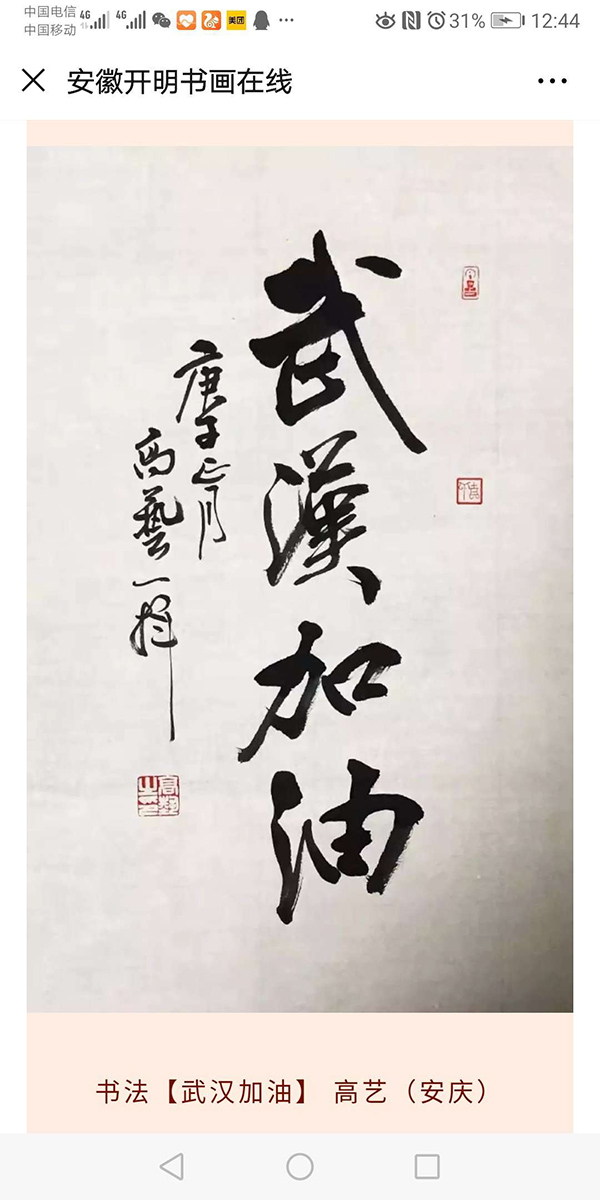 中国电信 4G 4G 美团 31% 12:44
中国移动
安徽开明书画在线
武漢加油
庚子正月
高藝一揮
书法【武汉加油】 高艺（安庆）